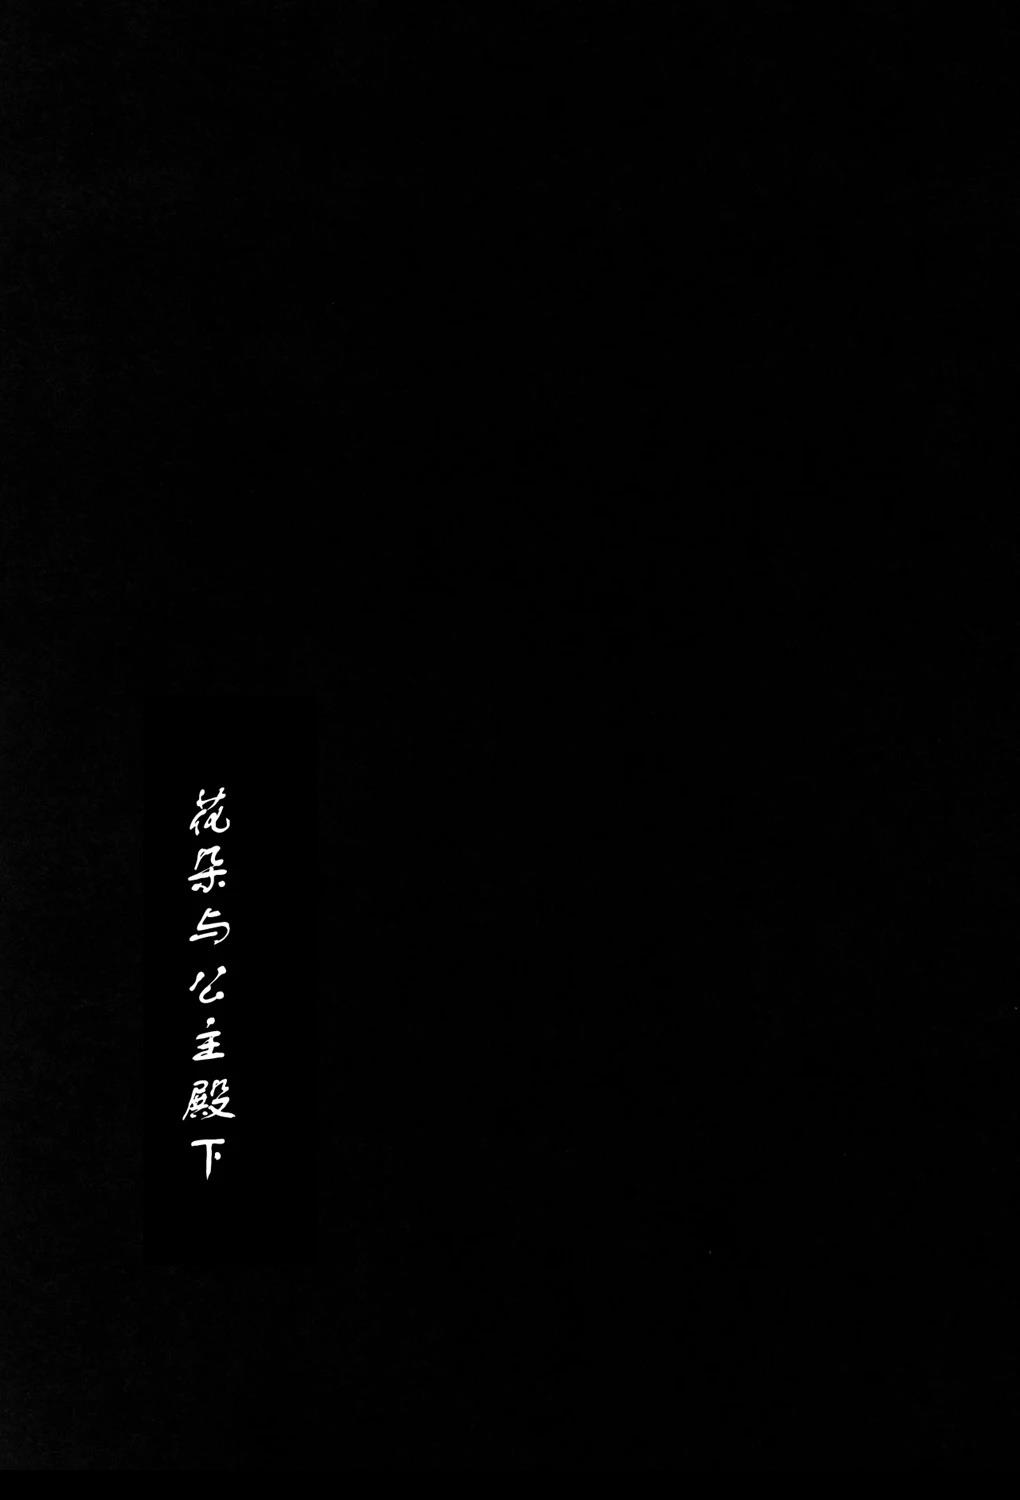 花朵与公主殿下